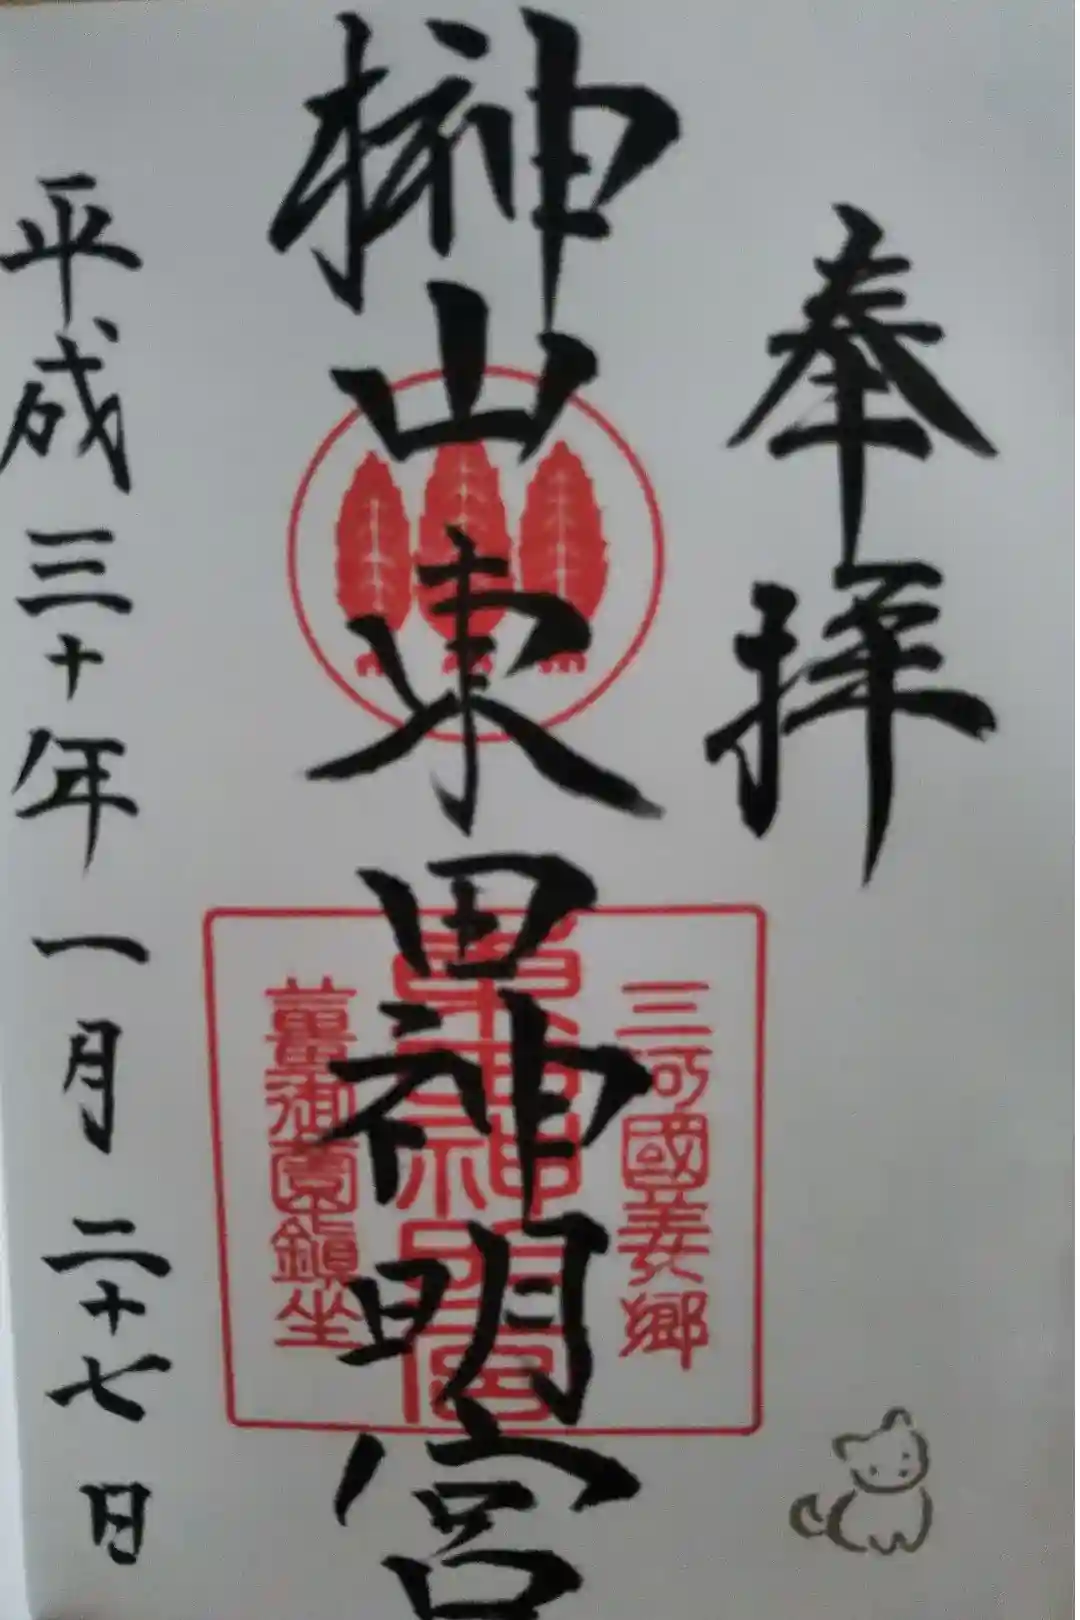 奉拝
榊山東田神明宮
三河國渥美郷
薑御園鎮坐
東田神明宮
平成三十年一月二十七日